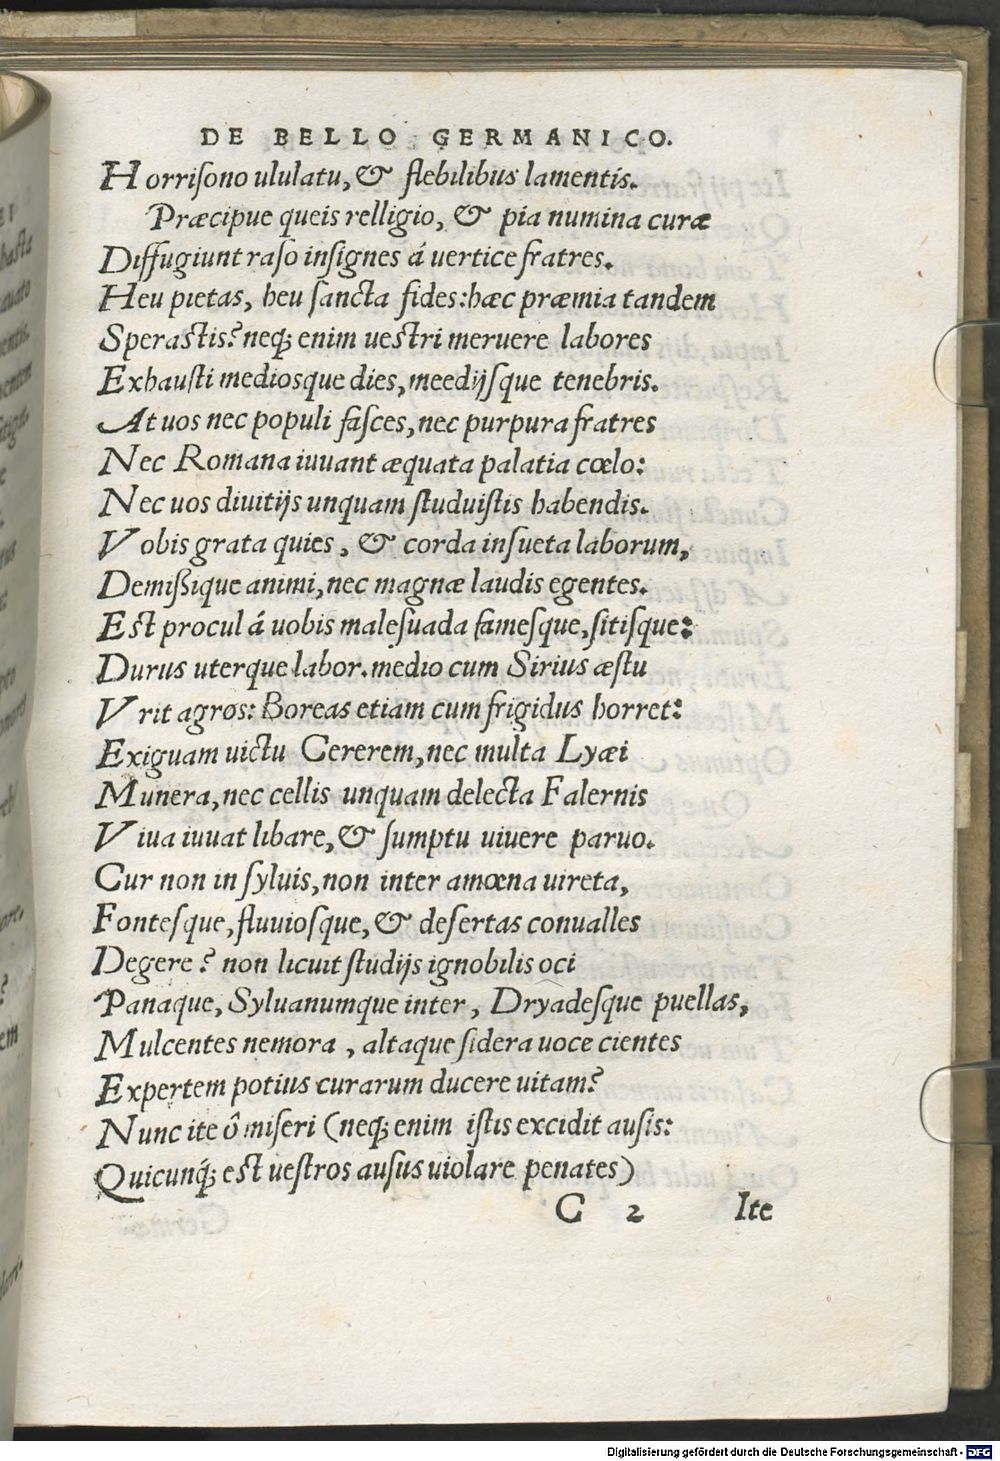 DE BELLO GERMANICO.
Horriſono ululatu, & flebilibus lamentis.
Præcipue queis relligio, & pia numina curæ
Diffugiunt raſo inſignes á uertice fratres.
Heu pietas, heu ſancta fides: hæc præmia tandem
Speraſtis? neq; enim ueſtri meruere labores
Exhauſti mediosque dies, meedijſque tenebris.
At uos nec populi faſces, nec purpura fratres
Nec Romana iuuant æquata palatia cœlo:
Nec uos diuitijs unquam ſtuduiſtis habendis.
Vobis grata quies, & corda inſueta laborum,
Demiſsique animi, nec magnæ laudis egentes.
Eſt procul á uobis maleſuada fameſque, ſitiſque:
Durus uterque labor. medio cum Sirius æſtu
Vrit agros: Boreas etiam cum frigidus horret:
Exiguam uictu Cererem, nec multa Lyæi
Munera, nec cellis unquam delecta Falernis
Viua iuuat libare, & ſumptu uiuere paruo.
Cur non in ſyluis, non inter amœna uireta,
Fonteſque, fluuioſque, & deſertas conualles
Degere? non licuit ſtudijs ignobilis oci
Panaque, Syluanumque inter, Dryadeſque puellas,
Mulcentes nemora, altaque ſidera uoce cientes
Expertem potius curarum ducere uitam?
Nunc ite ô miſeri (neq; enim iſtis excidit auſis:
Quicunq́; eſt ueſtros auſus uiolare penates)
C 2 Ite
Digitalisierung gefördert durch die Deutsche Forschungsgemeinschaft - DFG